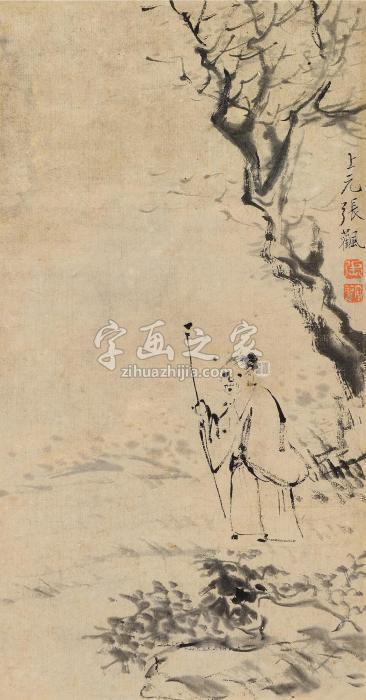 上元張飌
字画之家
www.zihuazhijia.com